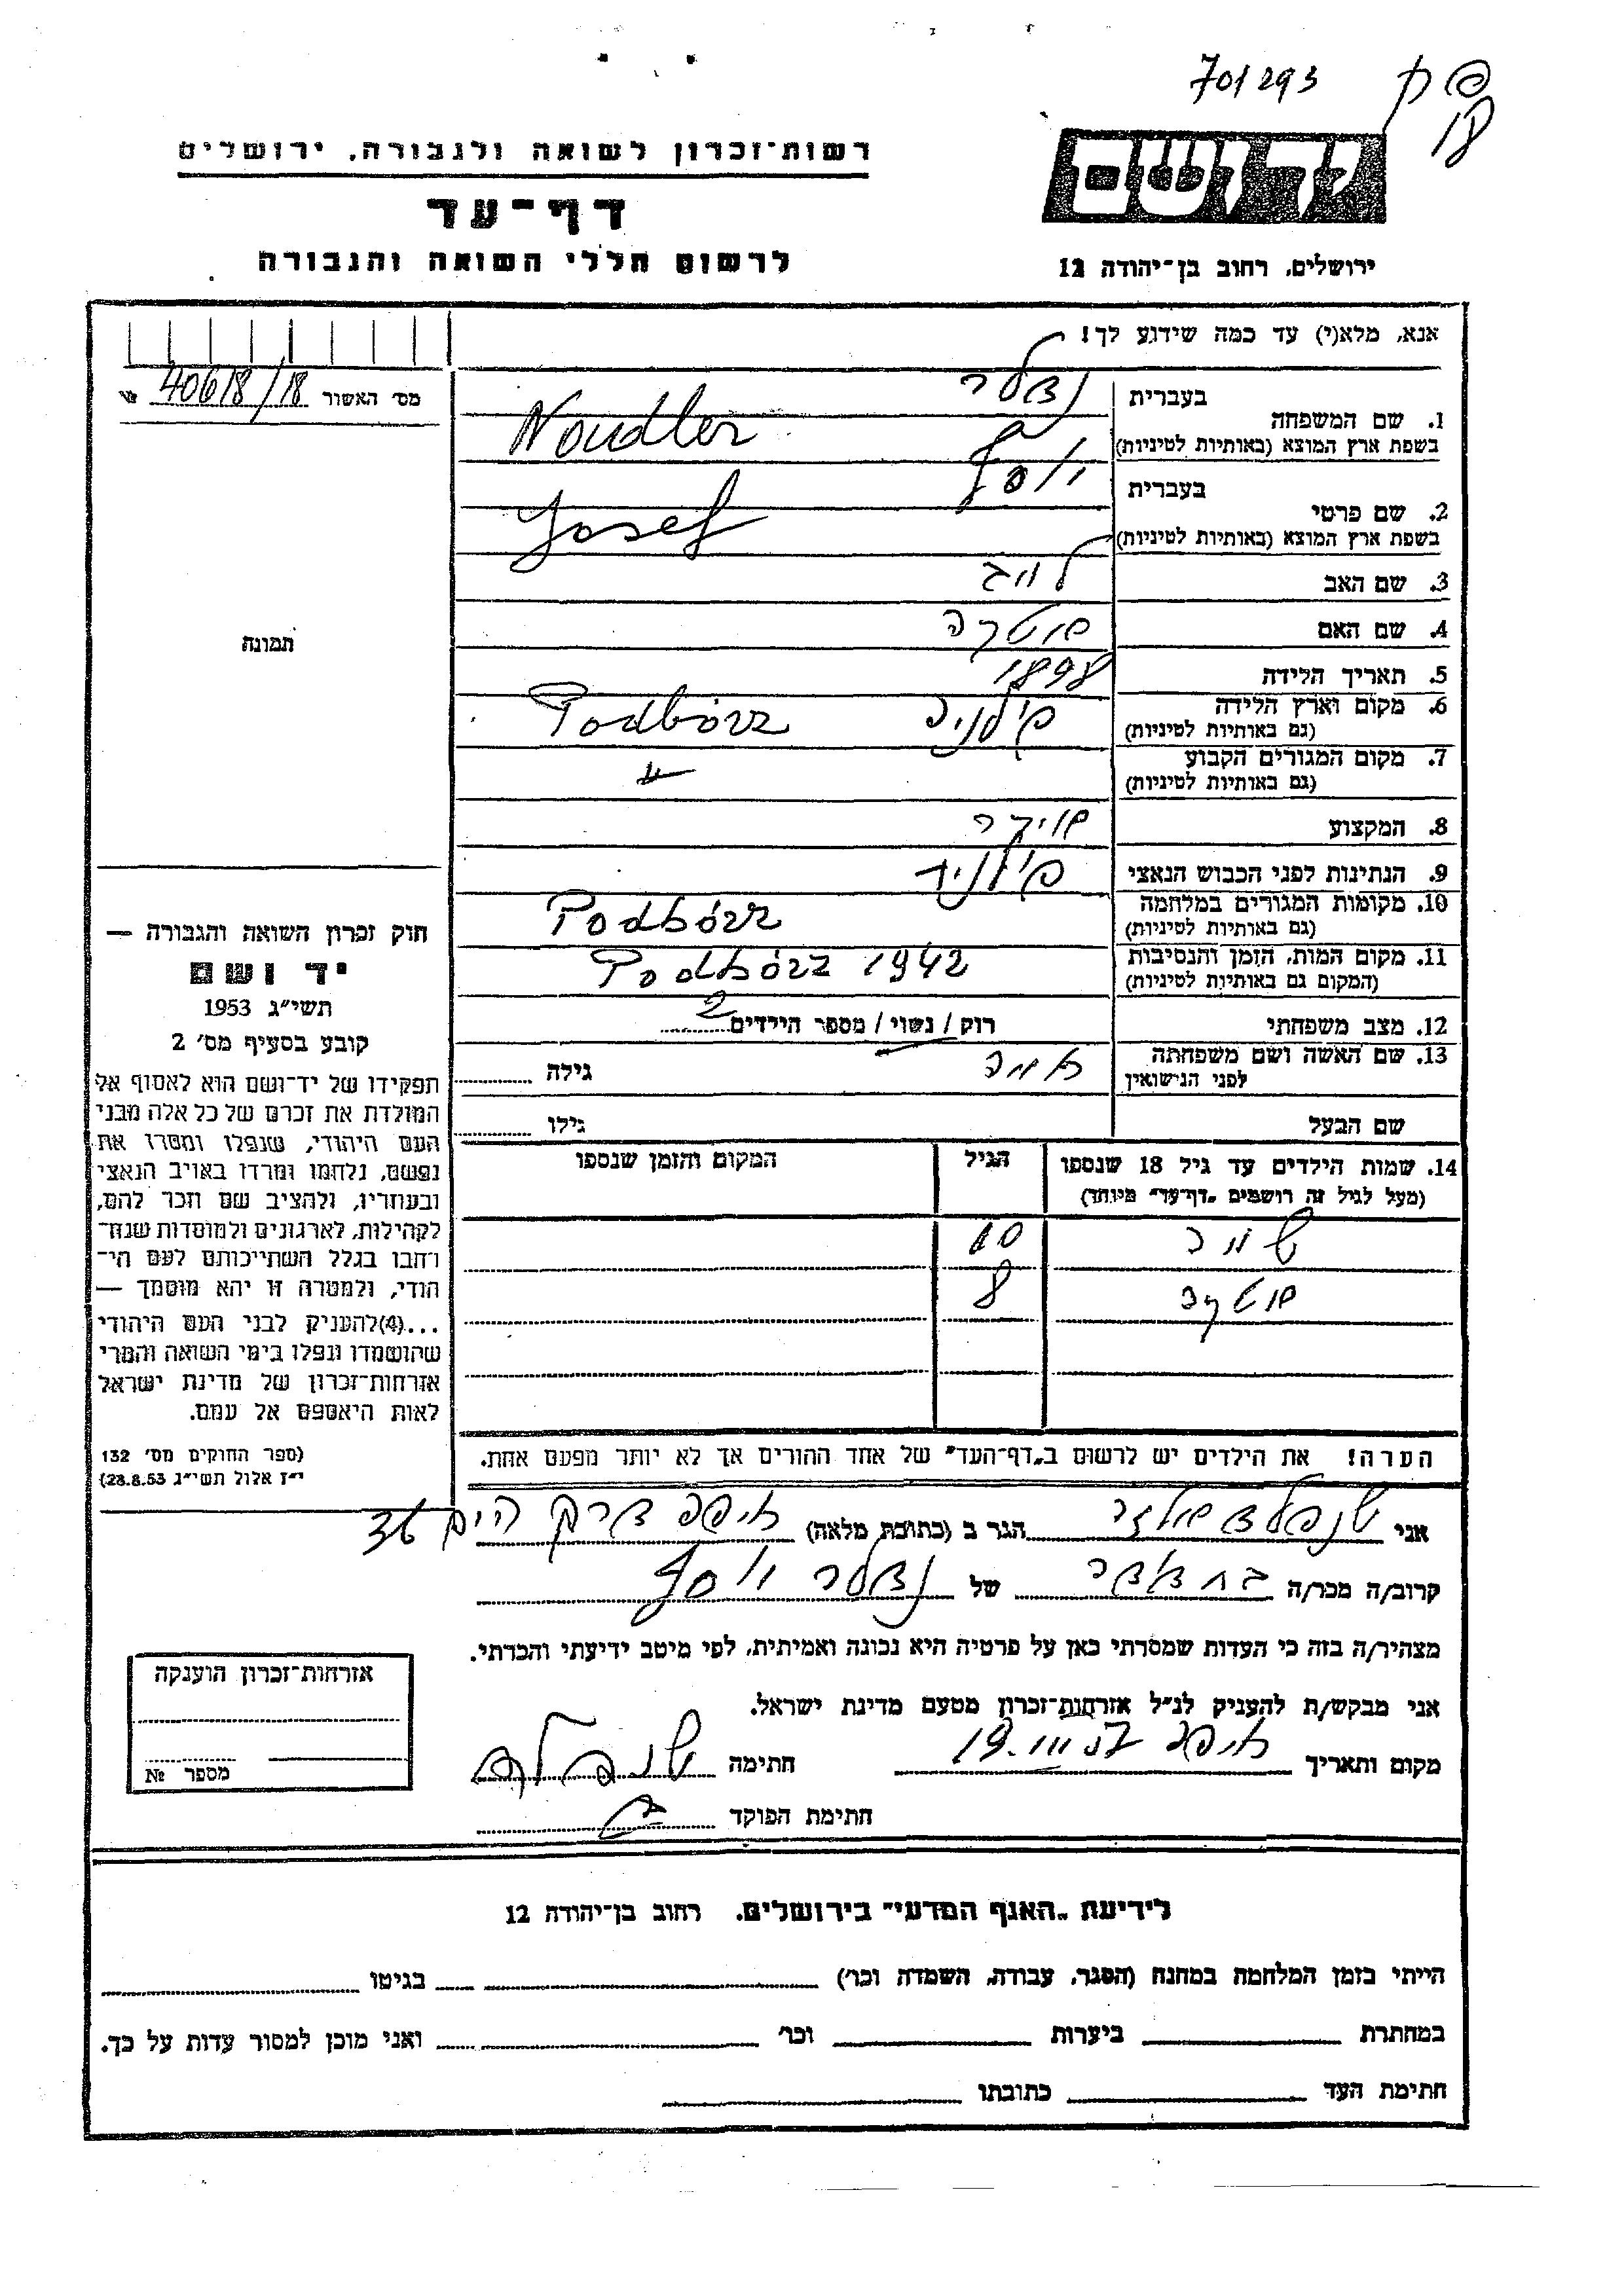 701293
רשות־זכרון לשואה ולגבורה, ירושלים
דף־עד
לרשום חללי השואה והגבורה
יד ושם
ירושלים, רחוב בן־יהודה 12
אנא, מלא(י) עד כמה שידוע לך!
מס׳ האשור 40618/18 №
תמונה
1. שם המשפחה בעברית נדלר
בשפת ארץ המוצא (באותיות לטיניות) Noudler
2. שם פרטי בעברית יוסף
בשפת ארץ המוצא (באותיות לטיניות) Josef
3. שם האב לייב
4. שם האם
5. תאריך הלידה 1898
6. מקום וארץ הלידה פולניה Podbórz
(גם באותיות לטיניות)
7. מקום המגורים הקבוע –״–
(גם באותיות לטיניות)
8. המקצוע
9. הנתינות לפני הכבוש הנאצי
10. מקומות המגורים במלחמה Podbórz
(גם באותיות לטיניות)
11. מקום המות, הזמן והנסיבות Podbórz 1942
(המקום גם באותיות לטיניות)
12. מצב משפחתי רוק / נשוי / מספר הילדים 2
13. שם האשה ושם משפחתה גילה
לפני הנישואין
שם הבעל גילו
14. שמות הילדים עד גיל 18 שנספו הגיל המקום והזמן שנספו
(מעל לגיל זה רושמים „דף־עד״ מיוחד)
10
8
הערה! את הילדים יש לרשום ב„דף־העד״ של אחד ההורים אך לא יותר מפעם אחת.
חוק זכרון השואה והגבורה —
יד ושם
תשי״ג 1953
קובע בסעיף מס׳ 2
תפקידו של יד־ושם הוא לאסוף אל
המולדת את זכרם של כל אלה מבני
העם היהודי, שנפלו ומסרו את
נפשם, נלחמו ומרדו באויב הנאצי
ובעוזריו, ולהציב שם וזכר להם,
לקהילות, לארגונים ולמוסדות שנח־
רחבו בגלל השתייכותם לעם הי־
הודי, ולמטרה זו יהא מוסמך —
...(4)להעניק לבני העם היהודי
שהושמדו ונפלו בימי השואה והמרי
אזרחות־זכרון של מדינת ישראל
לאות היאספם אל עמם.
(ספר החוקים מס׳ 132
י״ז אלול תשי״ג 28.8.53)
אני הגר ב (כתובת מלאה) חיפה דרך הים
קרוב/ה מכר/ה של נדלר יוסף
מצהיר/ה בזה כי העדות שמסרתי כאן על פרטיה היא נכונה ואמיתית, לפי מיטב ידיעתי והכרתי.
אני מבקש/ת להעניק לנ״ל אזרחות־זכרון מטעם מדינת ישראל.
מקום ותאריך חיפה חתימה
חתימת הפוקד
אזרחות־זכרון הוענקה
מספר №
לידיעת „האגף המדעי״ בירושלים, רחוב בן־יהודה 12
הייתי בזמן המלחמה במחנה (הסגר, עבודה, השמדה וכו׳) בגיטו
במחתרת ביערות וכו׳ ואני מוכן למסור עדות על כך.
חתימת העד כתובתו